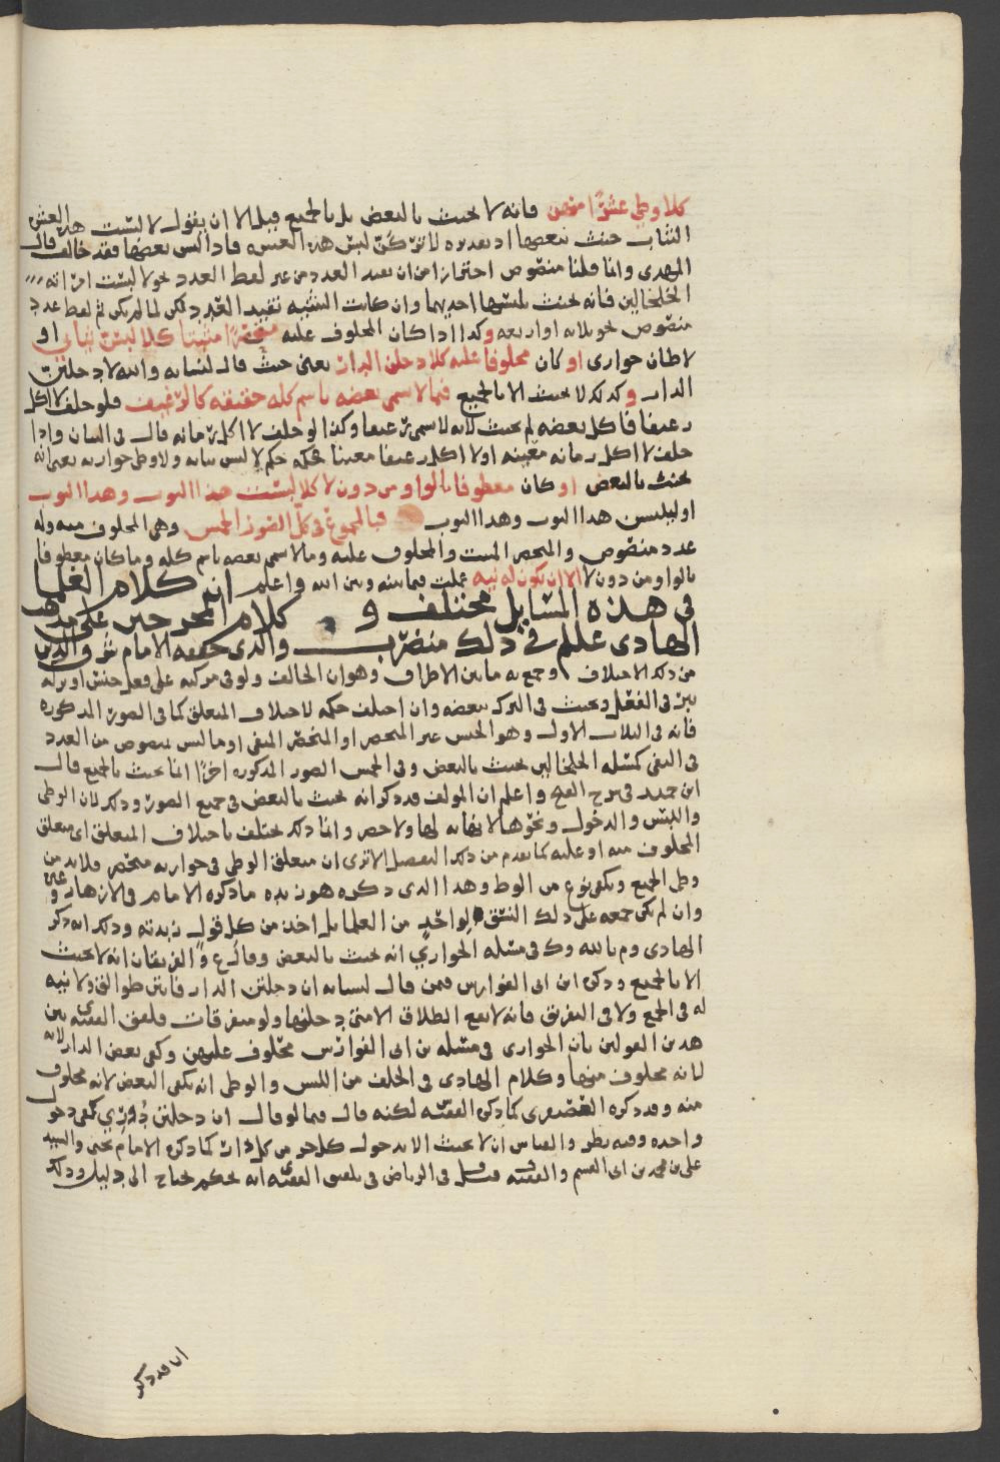 كلا وطي عشرا منهن فانه لا يحنث بالبعض بل بالجميع قيل الا ان يقول لا لبست هذه العشر
الثياب حنث ببعضها اذ لبس هذه العشر فاذا لبس بعضها فقد خالف قال
المهدي وانما قلنا منصوص احترازا من ان يفيد العدد من غير لفظ العدد نحو لا لبست امراته
الخلخالين فانه يحنث بلبسها احديهما وان كانت التثنيه تفيد العدد لكن لما لم يكن ثم لفظ عدد
منصوص نحو ثلاثه او اربعه وكذا اذا كان المحلوف عليه منحصرا مثبتا كلا لبس ثيابي او
لاطان جواري او كان محلوفا عليه كلا دخلن الدار يعني حيث قال لنسائه والله لا دخلتن
الدار وكذلك لا يحنث الا بالجميع فيما لا يسمى بعضه باسم كله حقيقه كالرغيف فلو حلف لا اكل
رغيفا فاكل بعضه لم يحنث لانه لا يسمى رغيفا وكذا لو حلف لا اكل رمانه قال في البيان واذا
حلف لا اكل رمانه معينه او لا اكل رغيفا معينا فحكمه حكم لا لبس ثيابه ولا وطي جواريه يعني انه
يحنث بالبعض او كان معطوفا بالواو من دون لا كلا لبست هذا الثوب وهذا الثوب
او ليلبسن هذا الثوب وهذا الثوب فبالمجموع في كل الصور الخمس وهي المحلوف منه وله
عدد منصوص والمنحصر المثبت والمحلوف عليه وما لا يسمى بعضه باسم كله وما كان معطوفا
بالواو من دون لا الا ان يكون له نيه عملت فيما بينه وبين الله واعلم ان كلام العلما
في هذه المسايل مختلف و كلام المخرجين على مذهب
الهادي علم في ذلك مضطرب والذي حققه الامام شرف الدين
من ذلك الاختلاف وجمع به ما بين الاطراف وهو ان الحالف
يبر في الفعل ويحنث في الترك ببعضه وان اختلف حكمه لاختلاف المتعلق كما في الصور المذكوره
فانه في الثلاث الاول وهو الجنس غير المنحصر او المنحصر المنفي او ما ليس بمنصوص من العدد
في النفي كمسئله الخلخالين يحنث بالبعض وفي الخمس الصور المذكوره اخرا انما يحنث بالجميع قال
ابن حميد في شرح الفتح واعلم ان المولف قد ذكر انه يحنث بالبعض في جميع الصور وذلك لان الوطي
واللبس والدخول ونحوها لا نهايه لها ولا حصر وانما ذلك يختلف باختلاف المتعلق اي متعلق
المحلوف منه او عليه كما تقدم من ذلك التفصيل الا ترى ان متعلق الوطي في جواريه منحصر فلا بد من
وطي الجميع ويكفي نوع من الوطي وهذا الذي ذكره هو زبده ما ذكره الامام في الازهار وغيره و
وان لم يكن جمعه على ذلك النسق لواحد من العلما بل اخذ من كل قول زبدته وذلك انه ذكر
الهادي وم بالله وك في مسئله الجواري انه يحنث بالبعض وقال ع والفريقان انه لا يحنث
الا بالجميع وذكر ابن ابي الفوارس فيمن قال لنسائه ان دخلتن الدار فانتن طوالق ولا نيه
له في الجمع ولا في التفريق فانه لا يقع الطلاق الا متى دخلنها ولو متفرقات فلفق الفقيه ي بين
هذين القولين بان الجواري في مسئله بن ابي الفوارس محلوف عليهن وكفى بعض الدار لانه
لانه محلوف منها وكلام الهادي في الحلف من اللبس والوطي انه يكفي البعض لانه محلوف
منه وقد ذكره الصعيتري كما ذكر الفقيه لكنه قال فيما لو قال ان دخلتن دوري كفى دخول
واحده وفيه نظر والقياس ان لا يحنث الا بدخول كل جزء من كل دار كما ذكره الامام يحيى والسيد
علي بن محمد بن ابي القسم والفقيه ف قال في الرياض في تلفيق الفقيه انه تحكم يحتاج الى دليل وذلك
انه قد ذكر